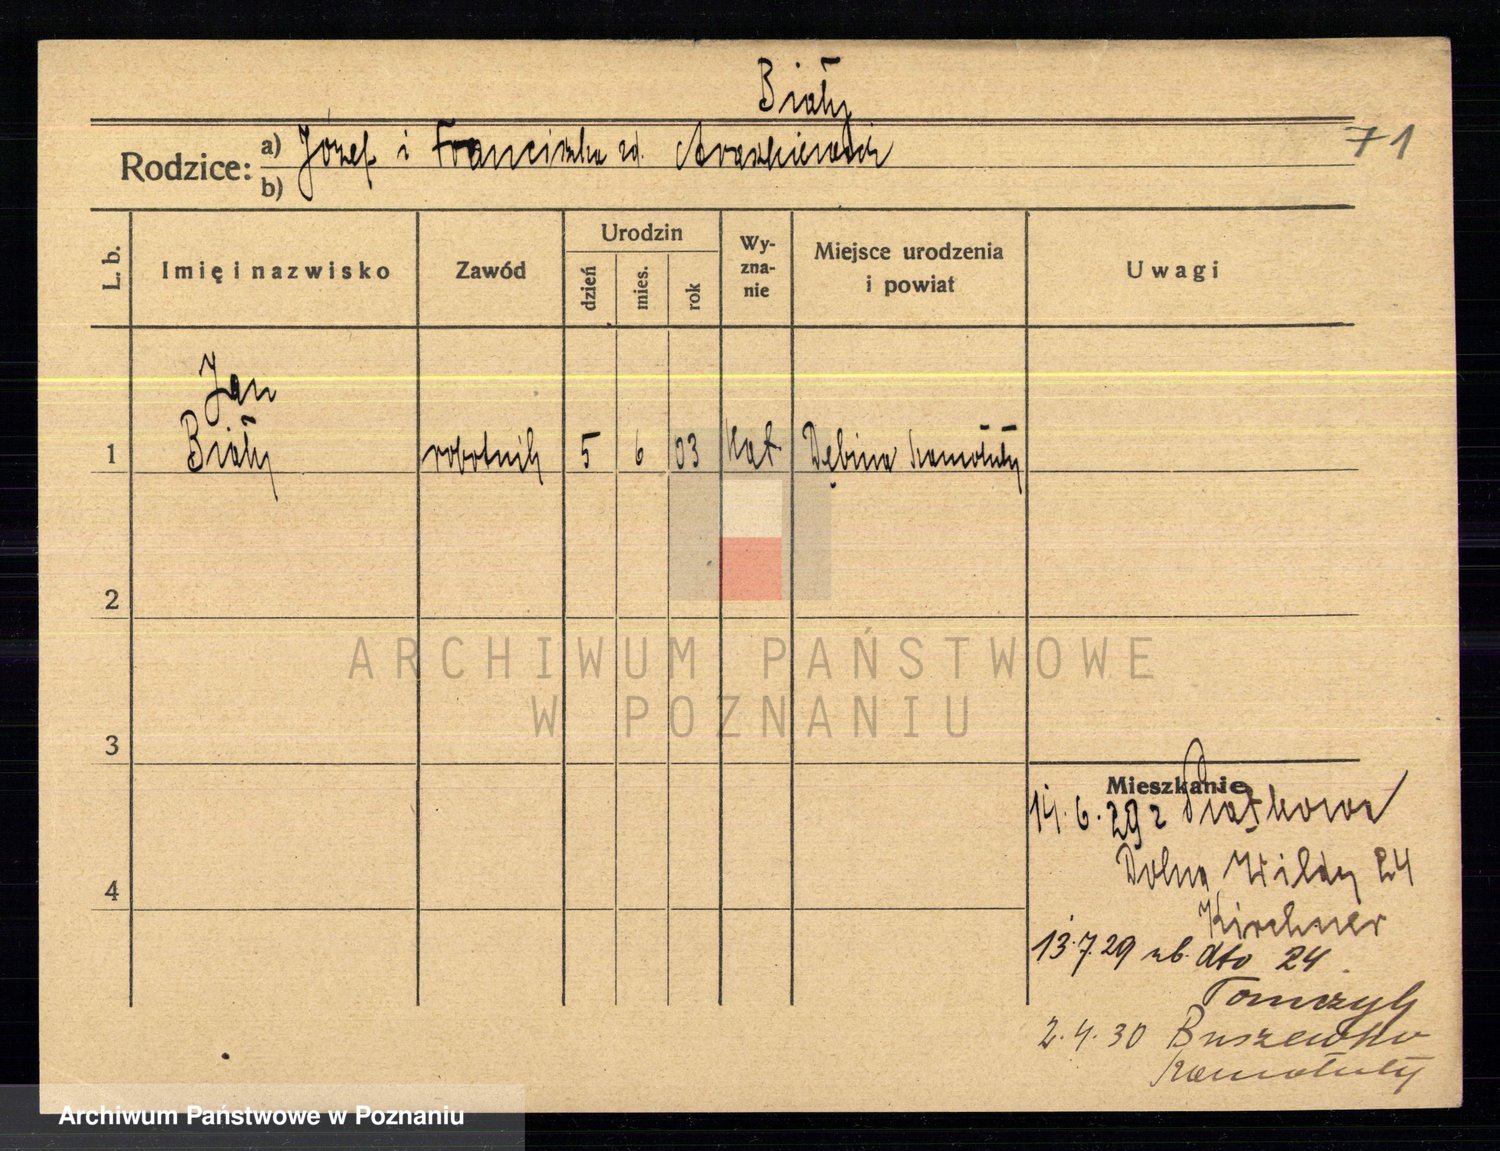 Biały
71
Rodzice: a) Józef i Franciszka zd.
b)
L. b. Imię i nazwisko Zawód Urodzin dzień mies. rok Wyznanie Miejsce urodzenia i powiat Uwagi
Jan
1 Biały robotnik 5 6 03 kat Dębina Szamotuły
2
3
4
Mieszkanie
14.6.29 z Piątkowa
Dolna Wilda 24
Kirchner
13.7.29 ub. dto 24
Tomczyk
2.4.30 Buszewko
Szamotuły
ARCHIWUM PAŃSTWOWE
W POZNANIU
Archiwum Państwowe w Poznaniu